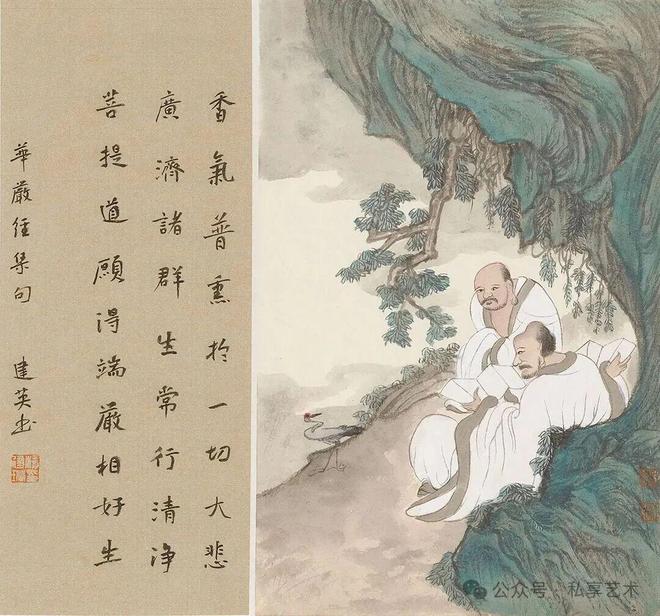 香氣普熏於一切大悲
廣濟諸群生常行清淨
菩提道願得端嚴相好生
華嚴經集句
建英書
公众号·私享艺术